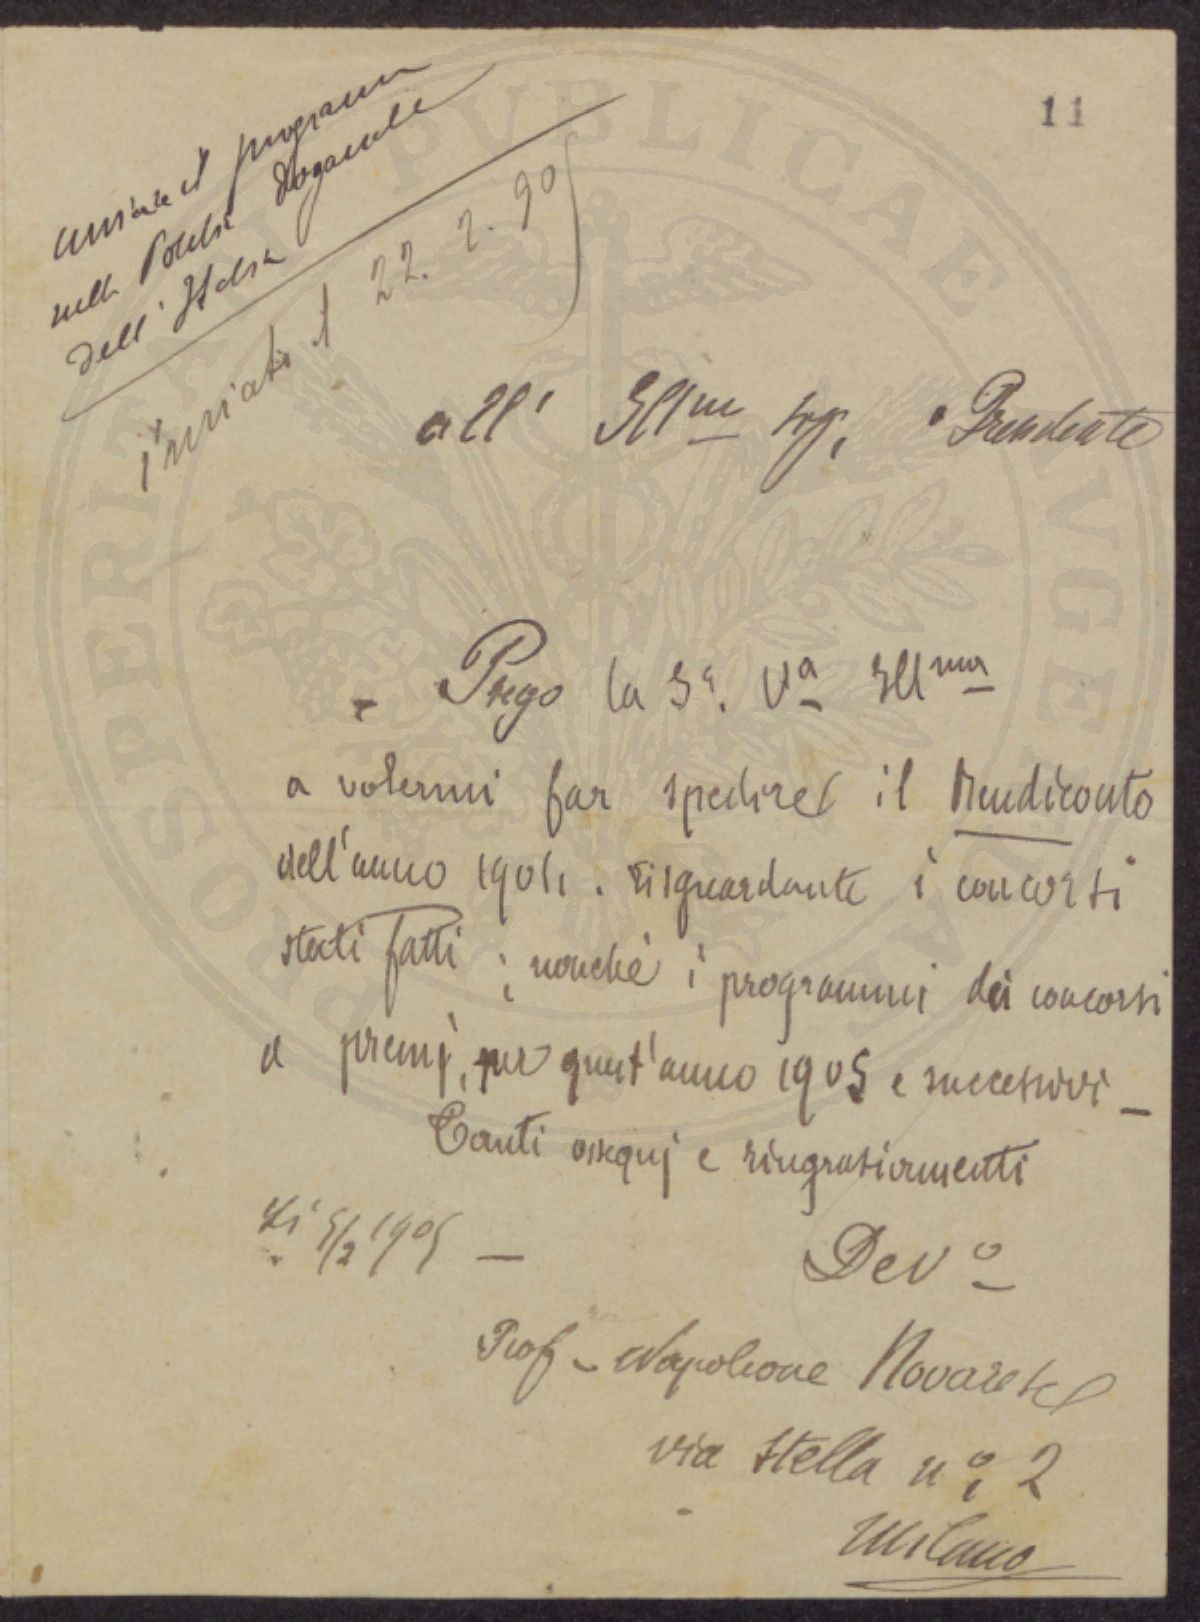 11
inviare il programma
sulla Politica doganale
dell'Italia
inviato il 22. 2. 90
all' Ill.mo Sig. Presidente
- Prego la S.a V.a Ill.ma
a volermi far spedire il Rendiconto
dell'anno 1904. risguardante i concorsi
stati fatti; nonchè i programmi dei concorsi
a premj, per quest'anno 1905 e successivi -
Tanti ossequj e ringraziamenti
Li 5/2 1905 -
Dev.o
Prof. Napoleone Novarese
via Stella n.o 2
Milano